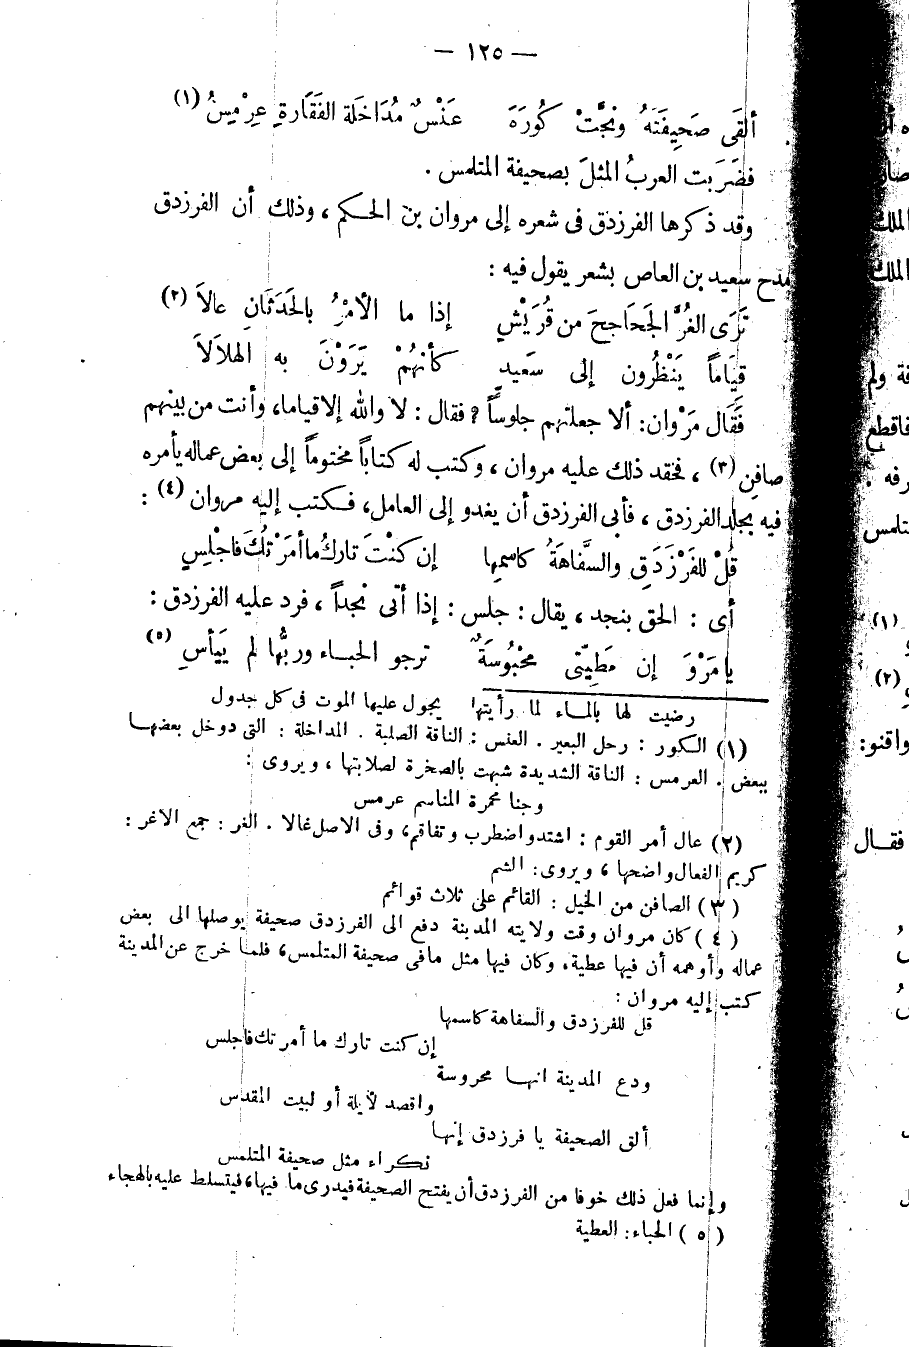 — ١٢٥ —
ألقَى صَحِيفَتَهُ ونَجَّتْ كُورَهَ عَنْسٌ مُدَاخَلَة الفَقَارةِ عِرْمِسُ (١)
فضَرَبت العربُ المثلَ بصحيفة المتلمس .
وقد ذكرها الفرزدق فى شعره إلى مروان بن الحكم ، وذلك أن الفرزدق
مدح سعيد بن العاص بشعر يقول فيه :
تَرَى الغُرَّ الجَحَاجِحَ من قُرَيْشٍ إذا ما الأمْرُ بالحَدَثَانِ عالاَ (٢)
قِيَاماً يَنْظُرون إلى سَعيدٍ كأنهُمْ يَرَوْنَ به الهلاَلاَ
فَقَال مَرْوان: ألا جعلتهم جلوساً ؟ فقال : لا والله إلا قياما، وأنت من بينهم
صافن (٣) ، فحقد ذلك عليه مروان ، وكتب له كتاباً مختوماً إلى بعض عماله يأمره
فيه بجلد الفرزدق ، فأبى الفرزدق أن يغدو إلى العامل، فكتب إليه مروان (٤) :
قُلْ للفَرْزَدَقِ والسَّفاهَةُ كاسمِها إن كنْتَ تاركُ ما أمَرْتُكَ فاجْلِسِ
أى : الحق بنجد ، يقال : جلس : إذا أتى نجداً ، فرد عليه الفرزدق :
يا مَرْوَ إن مَطِيَّتى محْبُوسَةٌ ترجو الحباء وربُّها لم يَيأسِ (٥)
رضيت لها بالماء لما رأيتها يجول عليها الموت فى كل جدول
(١) الكور : رحل البعير . العنس : الناقة الصلبة . المداخلة : التى دوخل بعضها
ببعض . العرمس : الناقة الشديدة شبهت بالصخرة لصلابتها ، ويروى :
وجنا محمرة المناسم عرمس
(٢) عال أمر القوم : اشتد واضطرب وتفاقم، وفى الاصل غالا . الغر : جمع الاغر :
كريم الفعال واضحها ، ويروى: الشم
(٣) الصافن من الخيل : القائم على ثلاث قوائم
(٤) كان مروان وقت ولايته المدينة دفع الى الفرزدق صحيفة يوصلها الى بعض
عماله وأوهمه أن فيها عطية. وكان فيها مثل ما فى صحيفة المتلمس، فلما خرج عن المدينة
كتب إليه مروان :
قل للفرزدق والسفاهة كاسمها
إن كنت تارك ما أمرتك فاجلس
ودع المدينة انها محروسة
واقصد لأيلة أو لبيت المقدس
ألق الصحيفة يا فرزدق إنها
نكراء مثل صحيفة المتلمس
وإنما فعل ذلك خوفا من الفرزدق أن يفتح الصحيفة فيدرى ما فيها، فيتسلط عليه بالهجاء
(٥) الحباء: العطية
الملك
الملك
فة ولم
فاقطع
رفه .
تلمس
(١)
(٢)
واقنو:
فقال